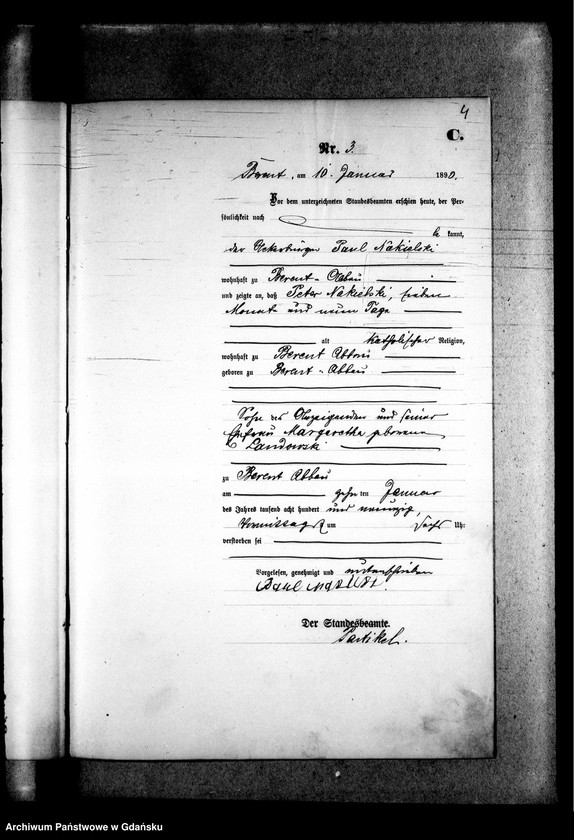 4
C.
Nr. 3.
Berent, am 10. Januar 1890.
Vor dem unterzeichneten Standesbeamten erschien heute, der Per-
sönlichkeit nach
be kannt,
der Ackerbürger Paul Nakielski
wohnhaft zu Berent-Abbau
und zeigte an, daß Peter Nakielski, sieben
Monat und neun Tage
alt katholischer Religion,
wohnhaft zu Berent Abbau
geboren zu Berent-Abbau
Sohn des Anzeigenden und seiner
Ehefrau Margaretha geborene
Landowski
zu Berent Abbau
am zehn ten Januar
des Jahres tausend acht hundert und neunzig,
Vormittags um sechs Uhr
verstorben sei
Vorgelesen, genehmigt und unterschrieben
Paul
Der Standesbeamte.
Partikel.
Archiwum Państwowe w Gdańsku